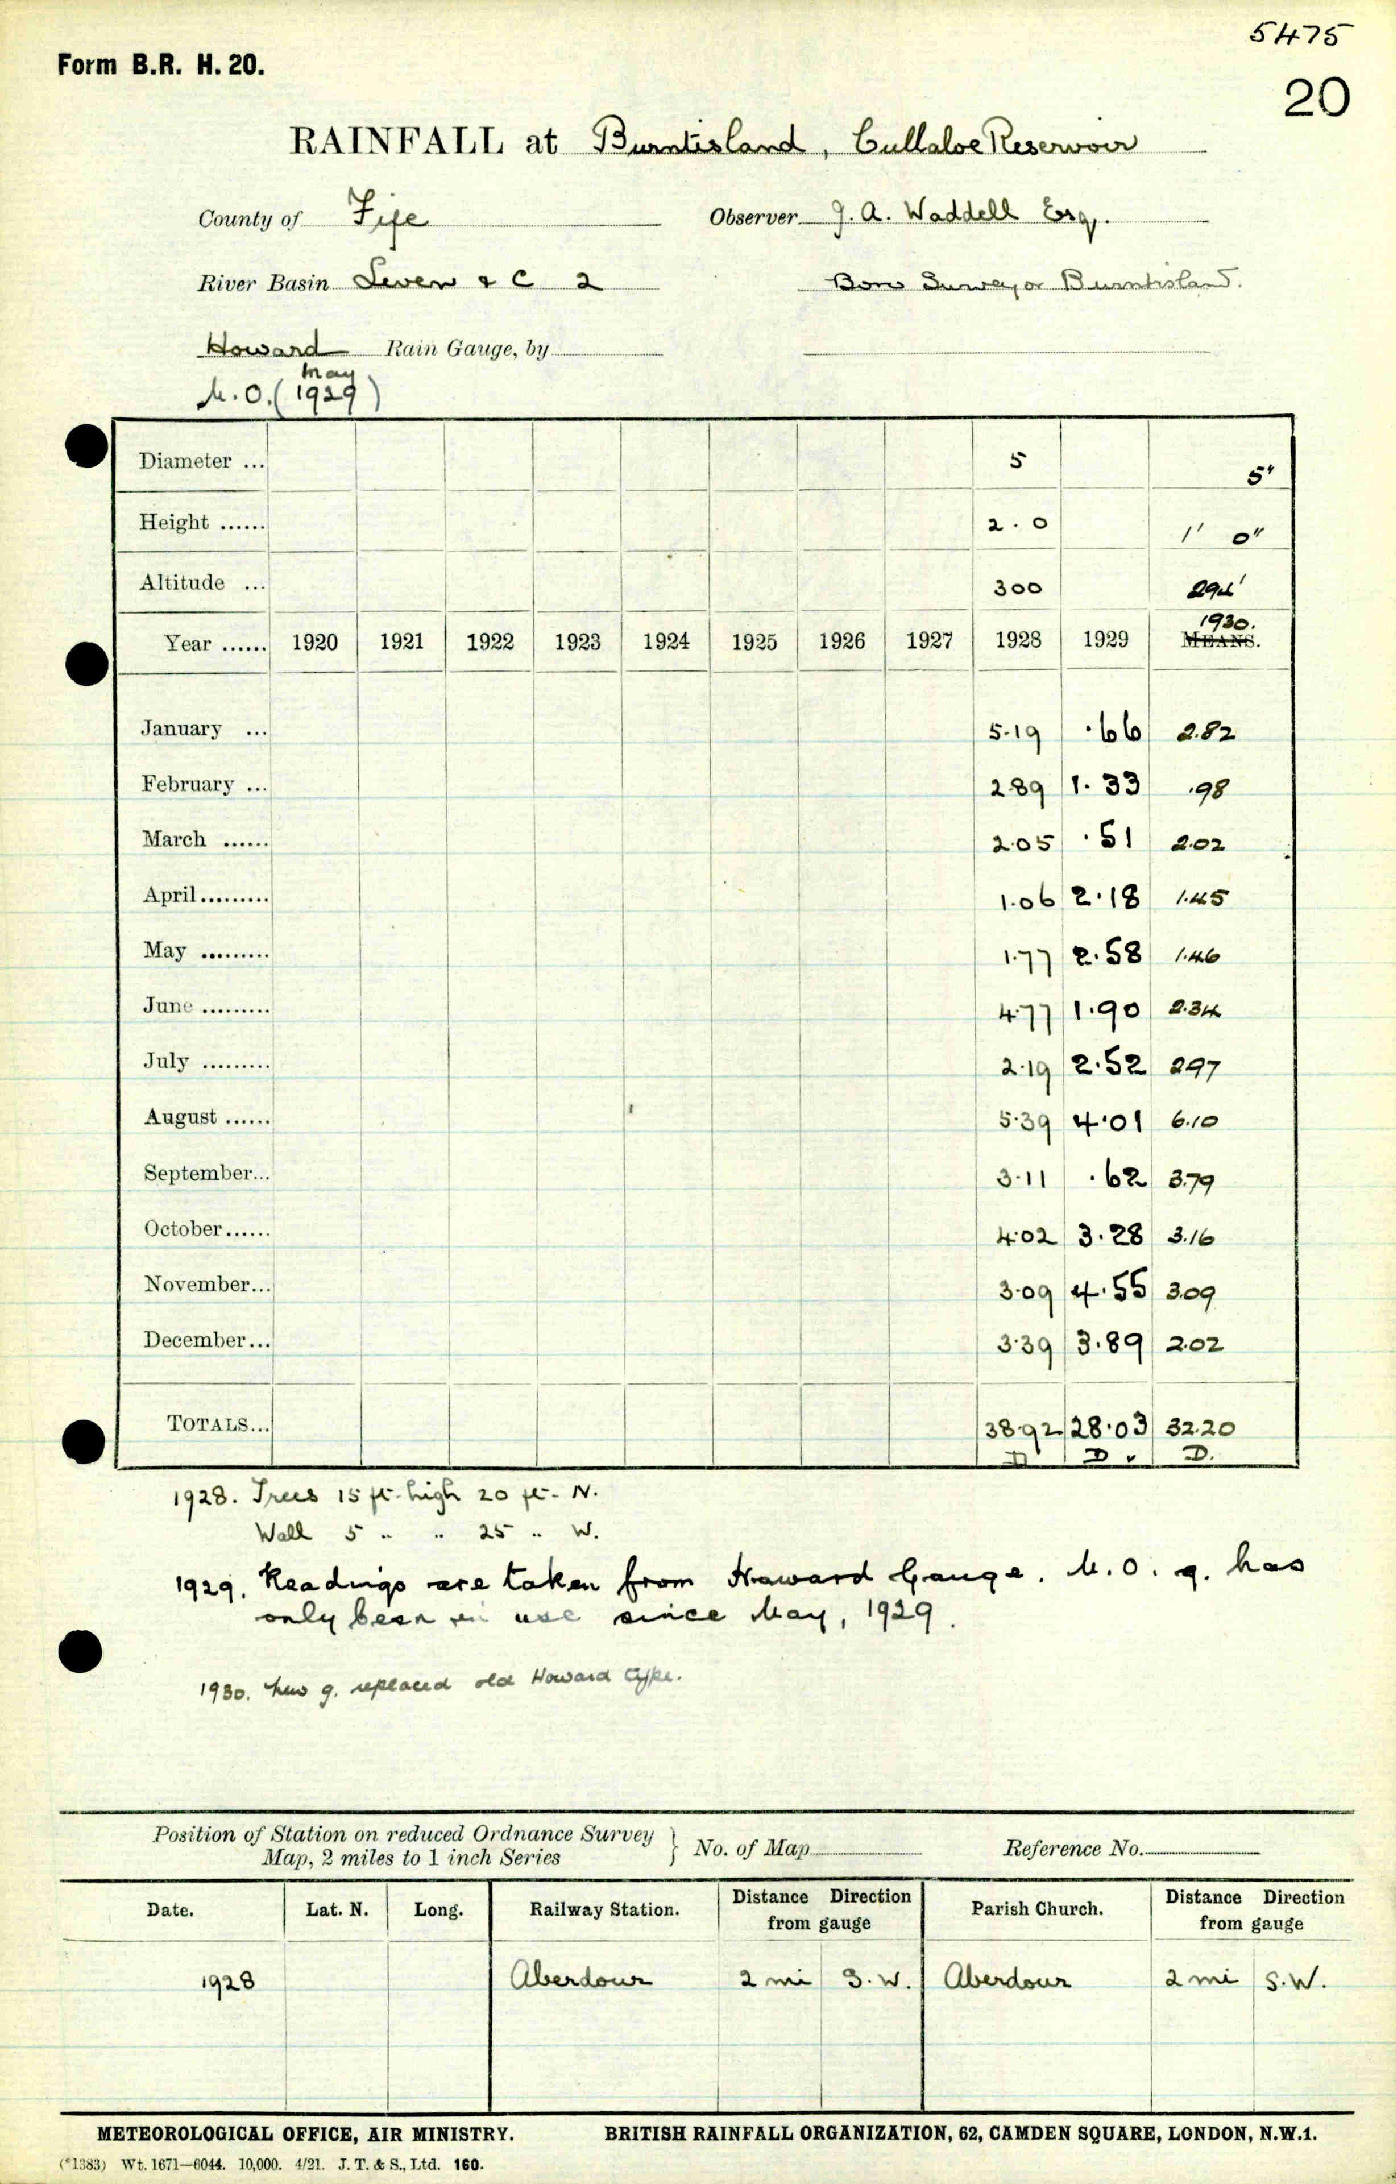 5475
Form B.R. H. 20.
20
RAINFALL at Burntisland, Cullaloe Reservoir
County of Fife Observer J. A. Waddell Esq.
River Basin Leven & C 2 Boro Surveyor Burntisland.
Howard Rain Gauge, by
M.O. (May 1929)
Diameter ... 5 5"
Height ...... 2.0 1' 0"
Altitude ... 300 294'
1930.
Year ...... 1920 1921 1922 1923 1924 1925 1926 1927 1928 1929 MEANS.
January ... 5.19 .66 2.82
February ... 2.89 1.33 .98
March ...... 2.05 .51 2.02
April ......... 1.06 2.18 1.45
May ......... 1.77 2.58 1.46
June ......... 4.77 1.90 2.34
July ......... 2.19 2.52 2.97
August ...... 5.39 4.01 6.10
September... 3.11 .62 3.79
October...... 4.02 3.28 3.16
November... 3.09 4.55 3.09
December... 3.39 3.89 2.02
TOTALS... 38.92 28.03 32.20
D D. D.
1928. Trees 15 ft. high 20 ft. N.
Wall 5 " " 25 " W.
1929. Readings are taken from Howard Gauge. M.O. g. has
only been in use since May, 1929.
1930. New g. replaced old Howard type.
Position of Station on reduced Ordnance Survey
Map, 2 miles to 1 inch Series } No. of Map Reference No.
Date. Lat. N. Long. Railway Station. Distance Direction from gauge Parish Church. Distance Direction from gauge
1928 Aberdour 2 mi S.W. Aberdour 2 mi S.W.
METEOROLOGICAL OFFICE, AIR MINISTRY. BRITISH RAINFALL ORGANIZATION, 62, CAMDEN SQUARE, LONDON, N.W.1.
(*1383) Wt. 1671—6044. 10,000. 4/21. J. T. & S., Ltd. 160.